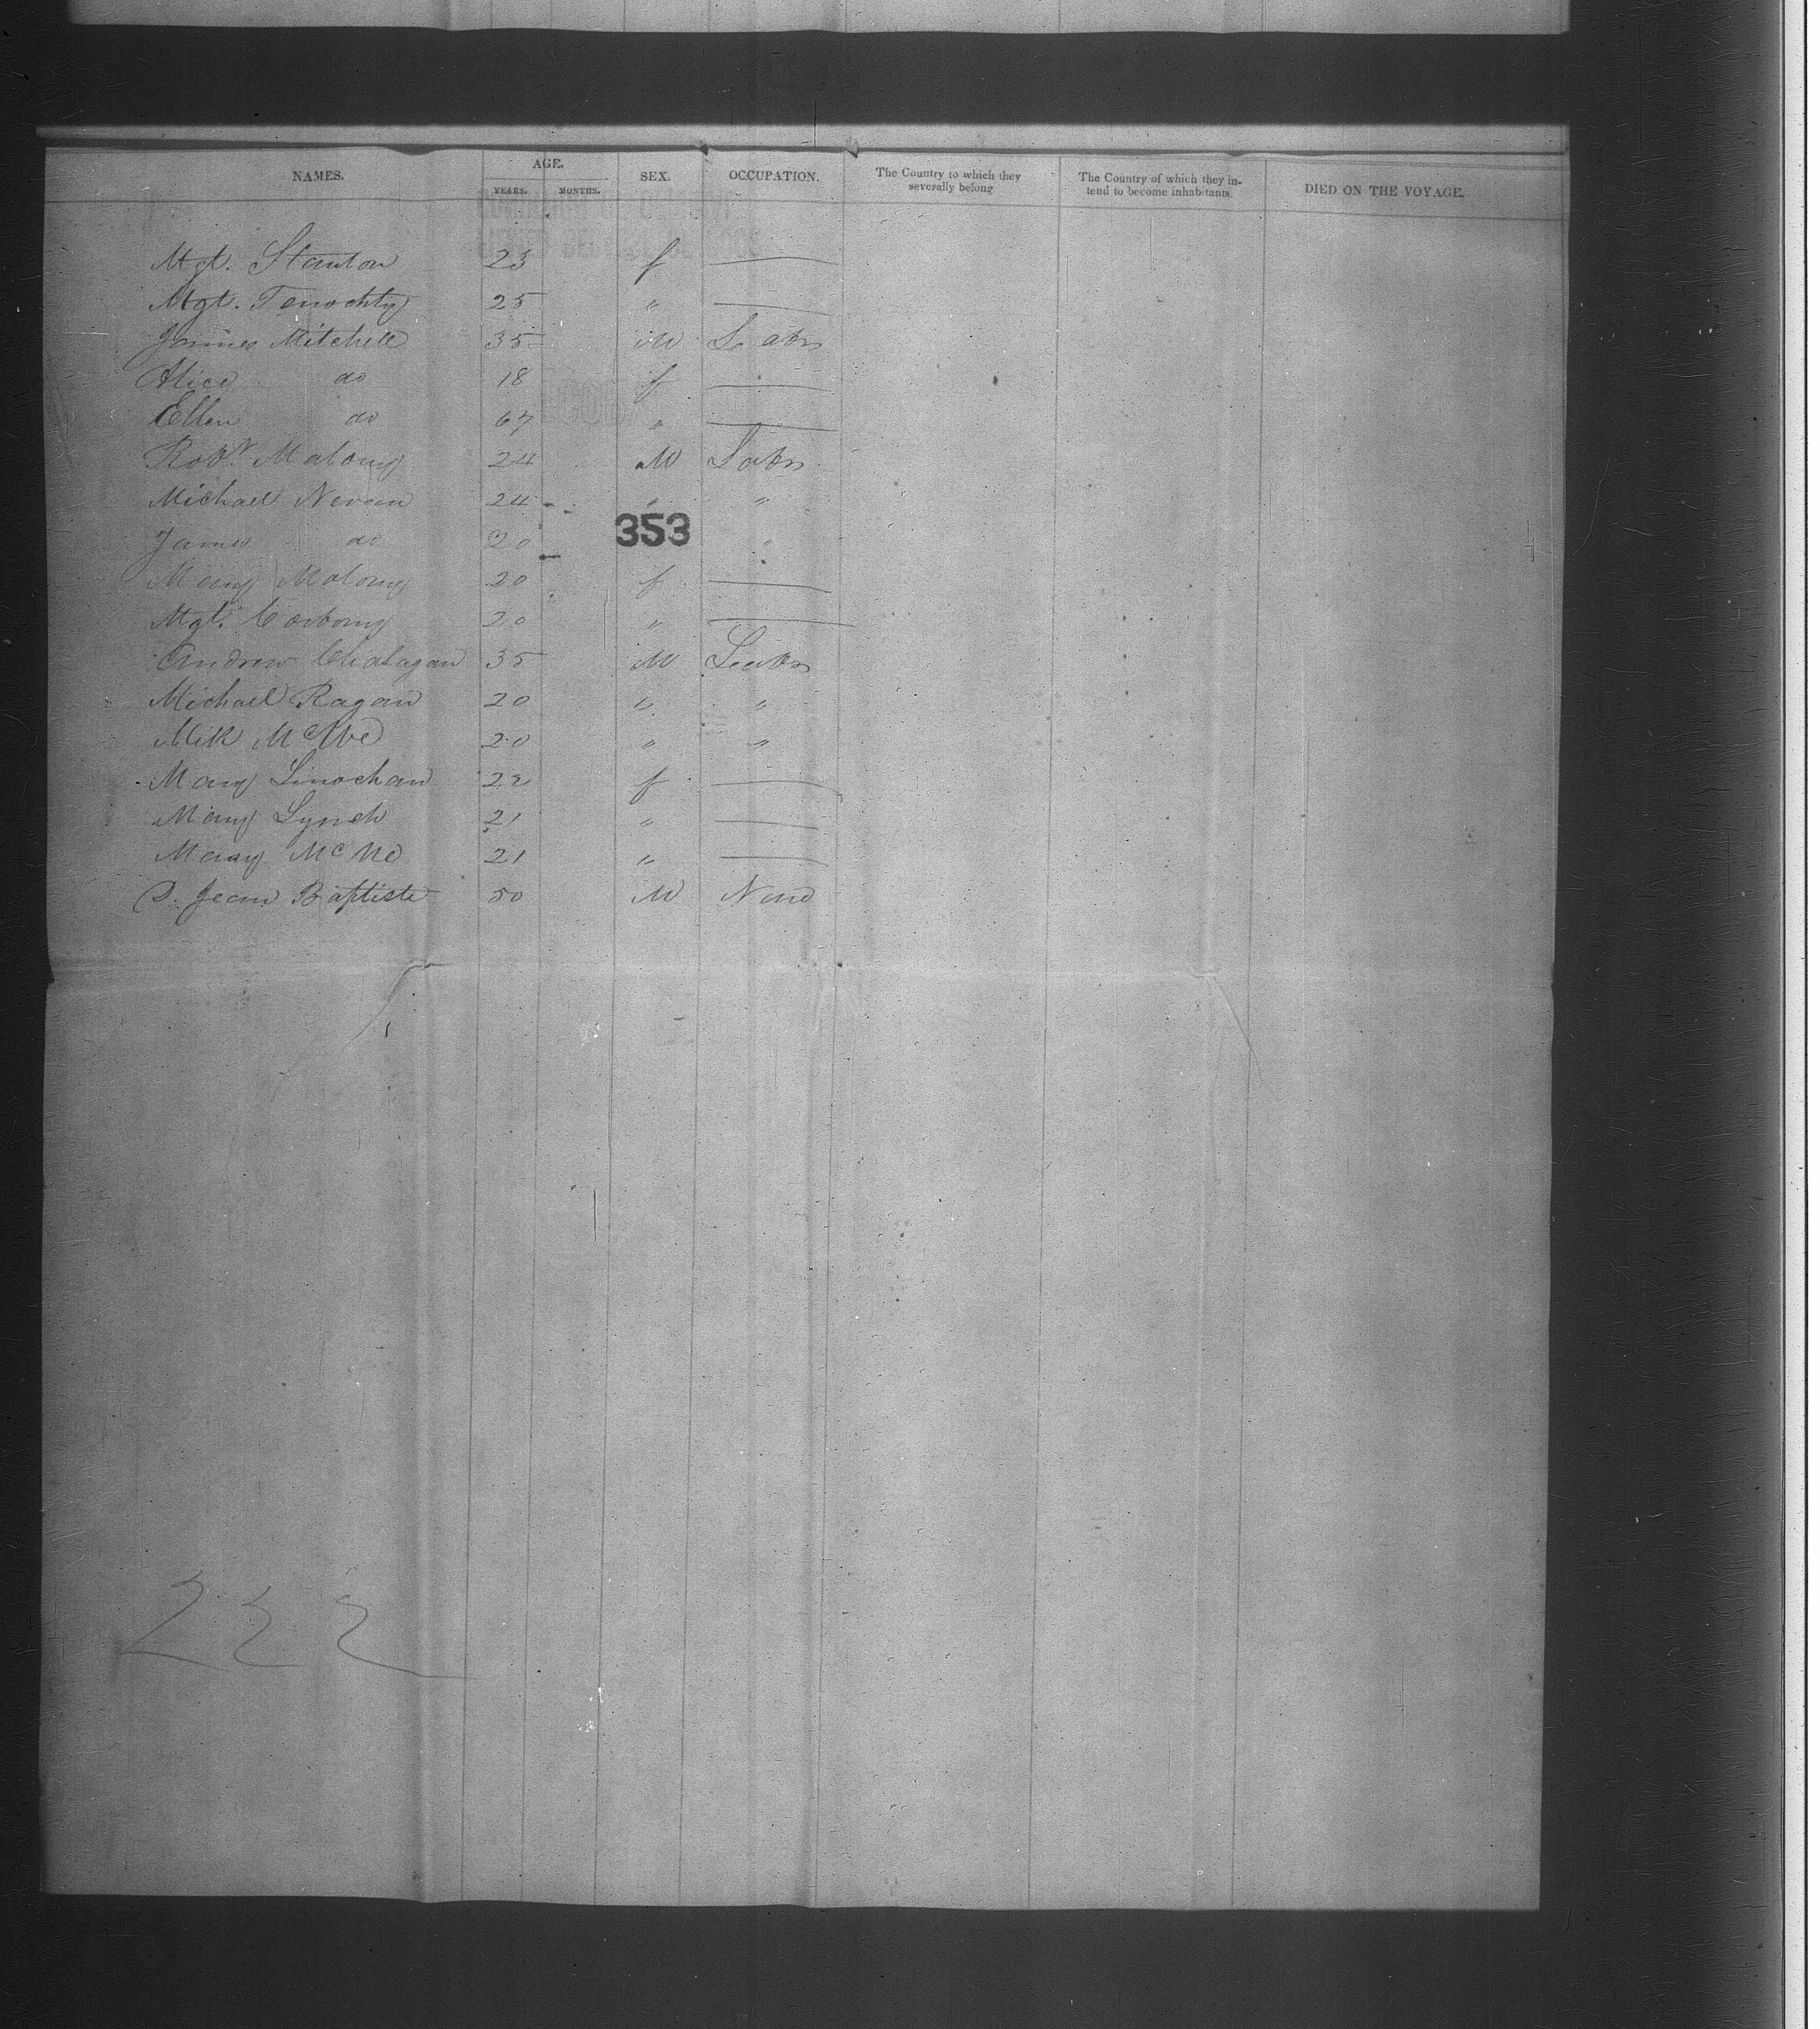 NAMES. AGE. YEARS. MONTHS. SEX. OCCUPATION. The Country to which they severally belong The Country of which they intend to become inhabitants. DIED ON THE VOYAGE.
Mgt. Stanton 23 f —
Mgt. 25 " —
James Mitchell 35 M Labr
Alice do 18 f —
Ellen do 67 " —
Robt. Malony 24 M Labr
Michael Nevan 24 " "
353
James do 20 "
Mary Malony 20 f —
Mgt. 20 " —
Andrew 35 M Labr
Michael Ragan 20 " "
Mik 20 " "
Mary Linochan 22 f —
Mary Lynch 21 " —
Mary 21 " —
Jean Baptiste 50 M None
222